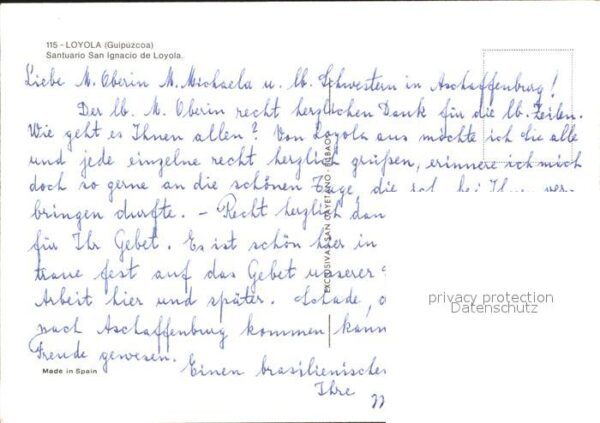 115 - LOYOLA (Guipúzcoa)
Santuario San Ignacio de Loyola.
Liebe M. Oberin M. Michaela u. lb. Schwestern in Aschaffenburg!
Der lb. M. Oberin recht herzlichen Dank für die lb. Zeilen.
Wie geht es Ihnen allen? Von Loyola aus möchte ich Sie alle
und jede einzelne recht herzlich grüßen, erinnere ich mich
doch so gerne an die schönen Tage, die ich bei Ihnen ver-
bringen durfte. - Recht herzlich
für Ihr Gebet. Es ist schön hier in
traue fest auf das Gebet unserer
Arbeit hier und später. Schade,
nach Aschaffenburg kommen
Freude gewesen.
Einen brasilienische
Ihre
EXCLUSIVAS SAN CAYETANO - BILBAO
Made in Spain
privacy protection
Datenschutz